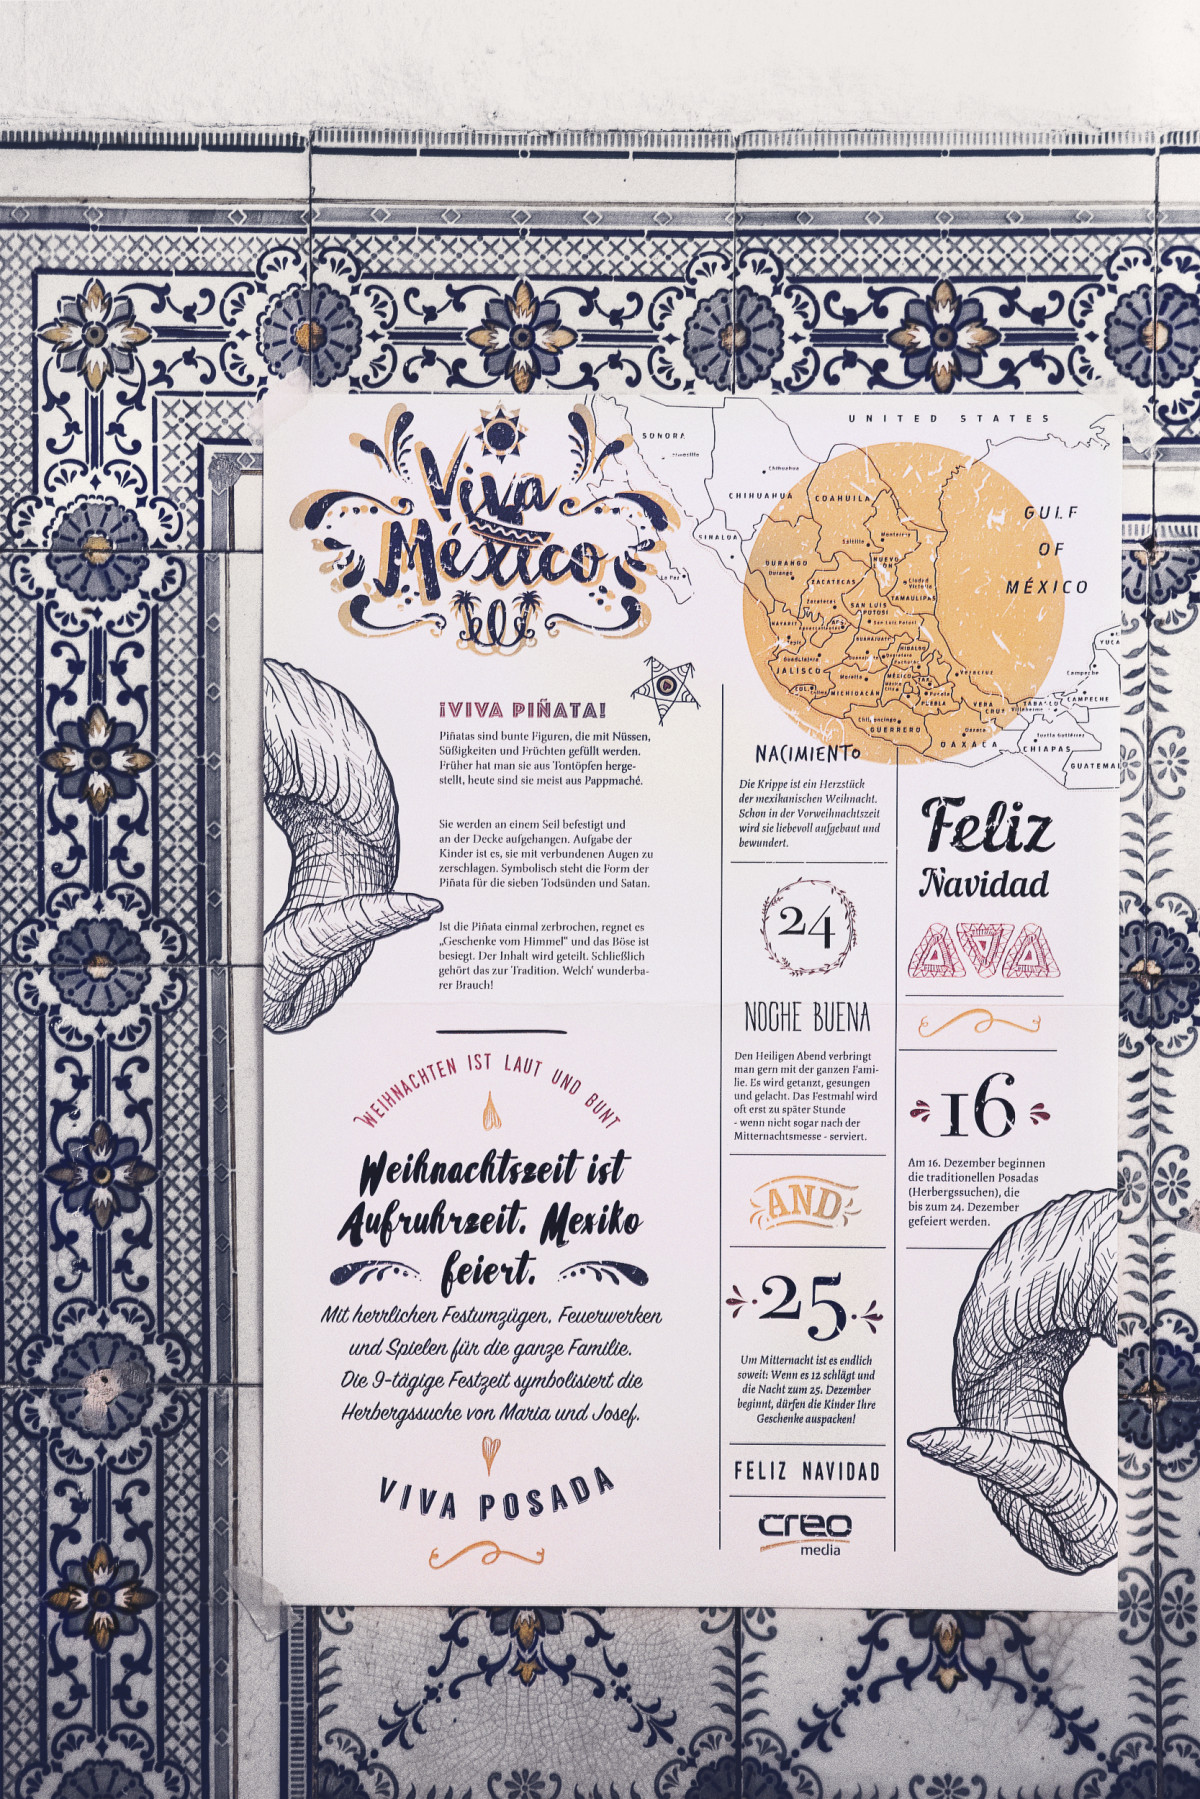 Viva
México
¡VIVA PIÑATA!
Piñatas sind bunte Figuren, die mit Nüssen,
Süßigkeiten und Früchten gefüllt werden.
Früher hat man sie aus Tontöpfen herge-
stellt, heute sind sie meist aus Pappmaché.
Sie werden an einem Seil befestigt und
an der Decke aufgehangen. Aufgabe der
Kinder ist es, sie mit verbundenen Augen zu
zerschlagen. Symbolisch steht die Form der
Piñata für die sieben Todsünden und Satan.
Ist die Piñata einmal zerbrochen, regnet es
„Geschenke vom Himmel" und das Böse ist
besiegt. Der Inhalt wird geteilt. Schließlich
gehört das zur Tradition. Welch' wunderba-
rer Brauch!
WEIHNACHTEN IST LAUT UND BUNT
Weihnachtszeit ist
Aufruhrzeit. Mexiko
feiert.
Mit herrlichen Festumzügen, Feuerwerken
und Spielen für die ganze Familie.
Die 9-tägige Festzeit symbolisiert die
Herbergssuche von Maria und Josef.
VIVA POSADA
UNITED STATES
SONORA
Hermosillo
Chihuahua
CHIHUAHUA
COAHUILA
GULF
OF
MÉXICO
SINALOA
Saltillo
Monterrey
DURANGO
Durango
NUEVO
La Paz
ZACATECAS
Ciudad
Victoria
TAMAULIPAS
SAN LUIS
POTOSI
Zacatecas
San Luis Potosi
NAYARIT
Tepic
HIDALGO
JALISCO
Morelia
MÉXICO
COLIMA
MICHOACÁN
Puebla
PUEBLA
VERACRUZ
VERA
CRUZ
GUERRERO
Oaxaca
OAXACA
Tuxtla Gutiérrez
CHIAPAS
Campeche
CAMPECHE
YUCA
GUATEMAL
NACIMIENTO
Die Krippe ist ein Herzstück
der mexikanischen Weihnacht.
Schon in der Vorweihnachtszeit
wird sie liebevoll aufgebaut und
bewundert.
24
NOCHE BUENA
Den Heiligen Abend verbringt
man gern mit der ganzen Fami-
lie. Es wird getanzt, gesungen
und gelacht. Das Festmahl wird
oft erst zu später Stunde
- wenn nicht sogar nach der
Mitternachtsmesse - serviert.
AND
25
Um Mitternacht ist es endlich
soweit: Wenn es 12 schlägt und
die Nacht zum 25. Dezember
beginnt, dürfen die Kinder Ihre
Geschenke auspacken!
FELIZ NAVIDAD
creo
media
Feliz
Navidad
16
Am 16. Dezember beginnen
die traditionellen Posadas
(Herbergssuchen), die
bis zum 24. Dezember
gefeiert werden.